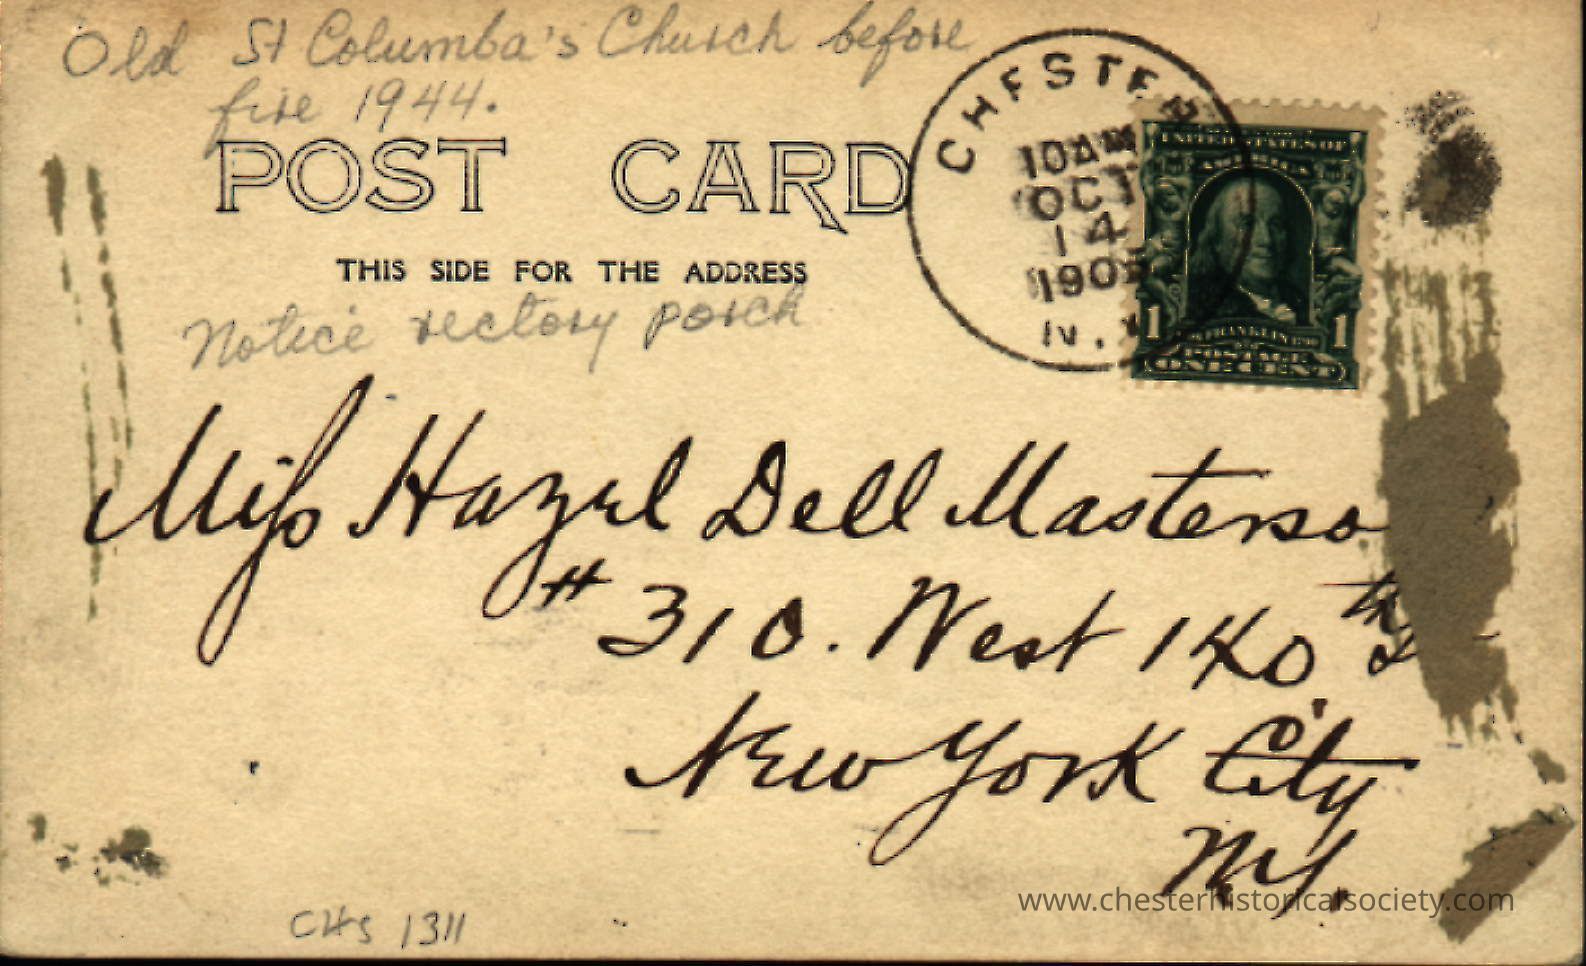 Old St Columba's Church before
fire 1944.
POST CARD
THIS SIDE FOR THE ADDRESS
Notice rectory porch
CHESTER
10 AM
OCT
14
N.Y.
UNITED STATES OF
AMERICA
1 FRANKLIN 1
POSTAGE
ONE CENT
Miss Hazel Dell Masterso
# 310. West 140th
New York City
N.Y.
www.chesterhistoricalsociety.com
CHS 1311